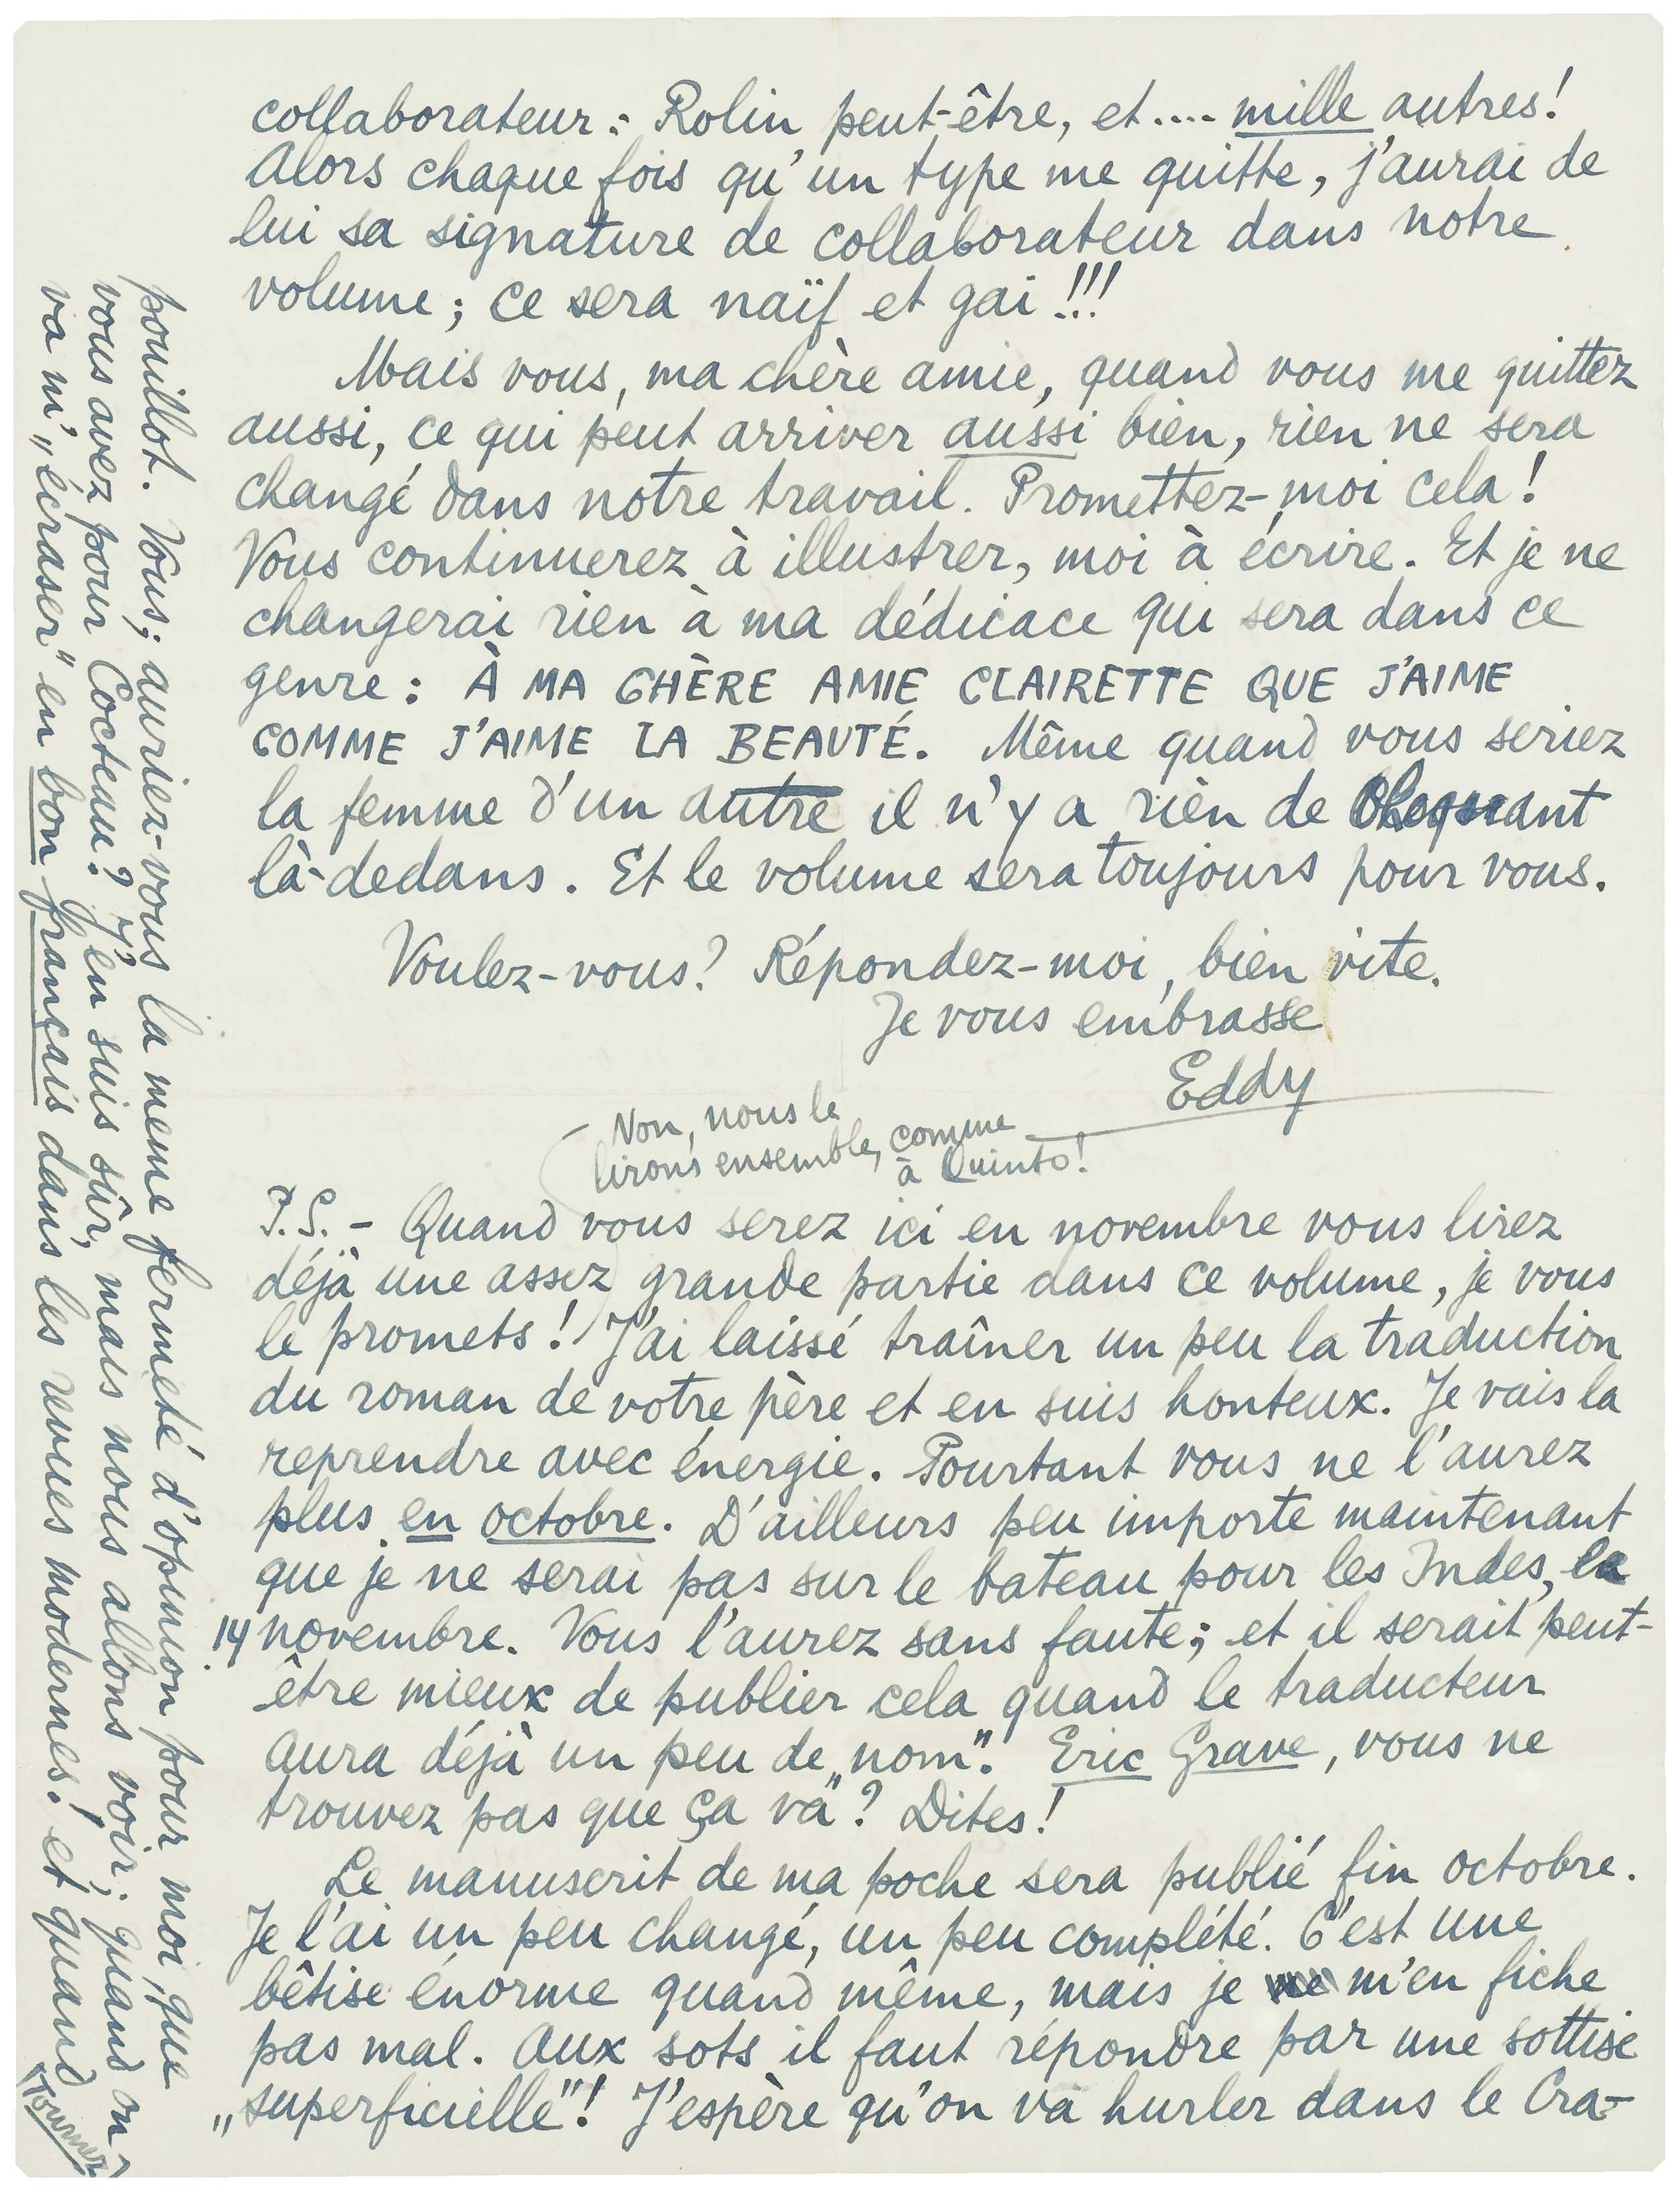 collaborateur : Rolin, peut-être, et.... mille autres!
Alors chaque fois qu'un type me quitte, j'aurai de
lui sa signature de collaborateur dans notre
volume; ce sera naïf et gai!!!
Mais vous, ma chère amie, quand vous me quittez
aussi, ce qui peut arriver aussi bien, rien ne sera
changé dans notre travail. Promettez-moi cela!
Vous continuerez à illustrer, moi à écrire. Et je ne
changerai rien à ma dédicace qui sera dans ce
genre : À MA CHÈRE AMIE CLAIRETTE QUE J'AIME
COMME J'AIME LA BEAUTÉ. Même quand vous seriez
la femme d'un autre il n'y a rien de choquant
là-dedans. Et le volume sera toujours pour vous.
Voulez-vous? Répondez-moi, bien vite.
Je vous embrasse
Eddy
Non, nous le
lirons ensemble, comme
à Quinto!
P.S. - Quand vous serez ici en novembre vous lirez
déjà une assez grande partie dans ce volume, je vous
le promets! J'ai laissé traîner un peu la traduction
du roman de votre père et en suis honteux. Je vais la
reprendre avec énergie. Pourtant vous ne l'aurez
plus en octobre. D'ailleurs peu importe maintenant
que je ne serai pas sur le bateau pour les Indes, le
14 novembre. Vous l'aurez sans faute; et il serait peut-
être mieux de publier cela quand le traducteur
aura déjà un peu de „nom". Eric Grave, vous ne
trouvez pas que ça „va"? Dites!
Le manuscrit de ma poche sera publié fin octobre.
Je l'ai un peu changé, un peu complété. C'est une
bêtise énorme quand même, mais je m'en fiche
pas mal. Aux sots il faut répondre par une sottise
„superficielle"! J'espère qu'on va hurler dans le Cra-
pouillot. Vous; auriez-vous la meme fermeté d'opinion pour moi, que
vous avez pour Cocteau? J'en suis sûr, mais nous allons voir; quand on
va m'„écraser" en bon français dans les revues modernes! et quand
Tournez